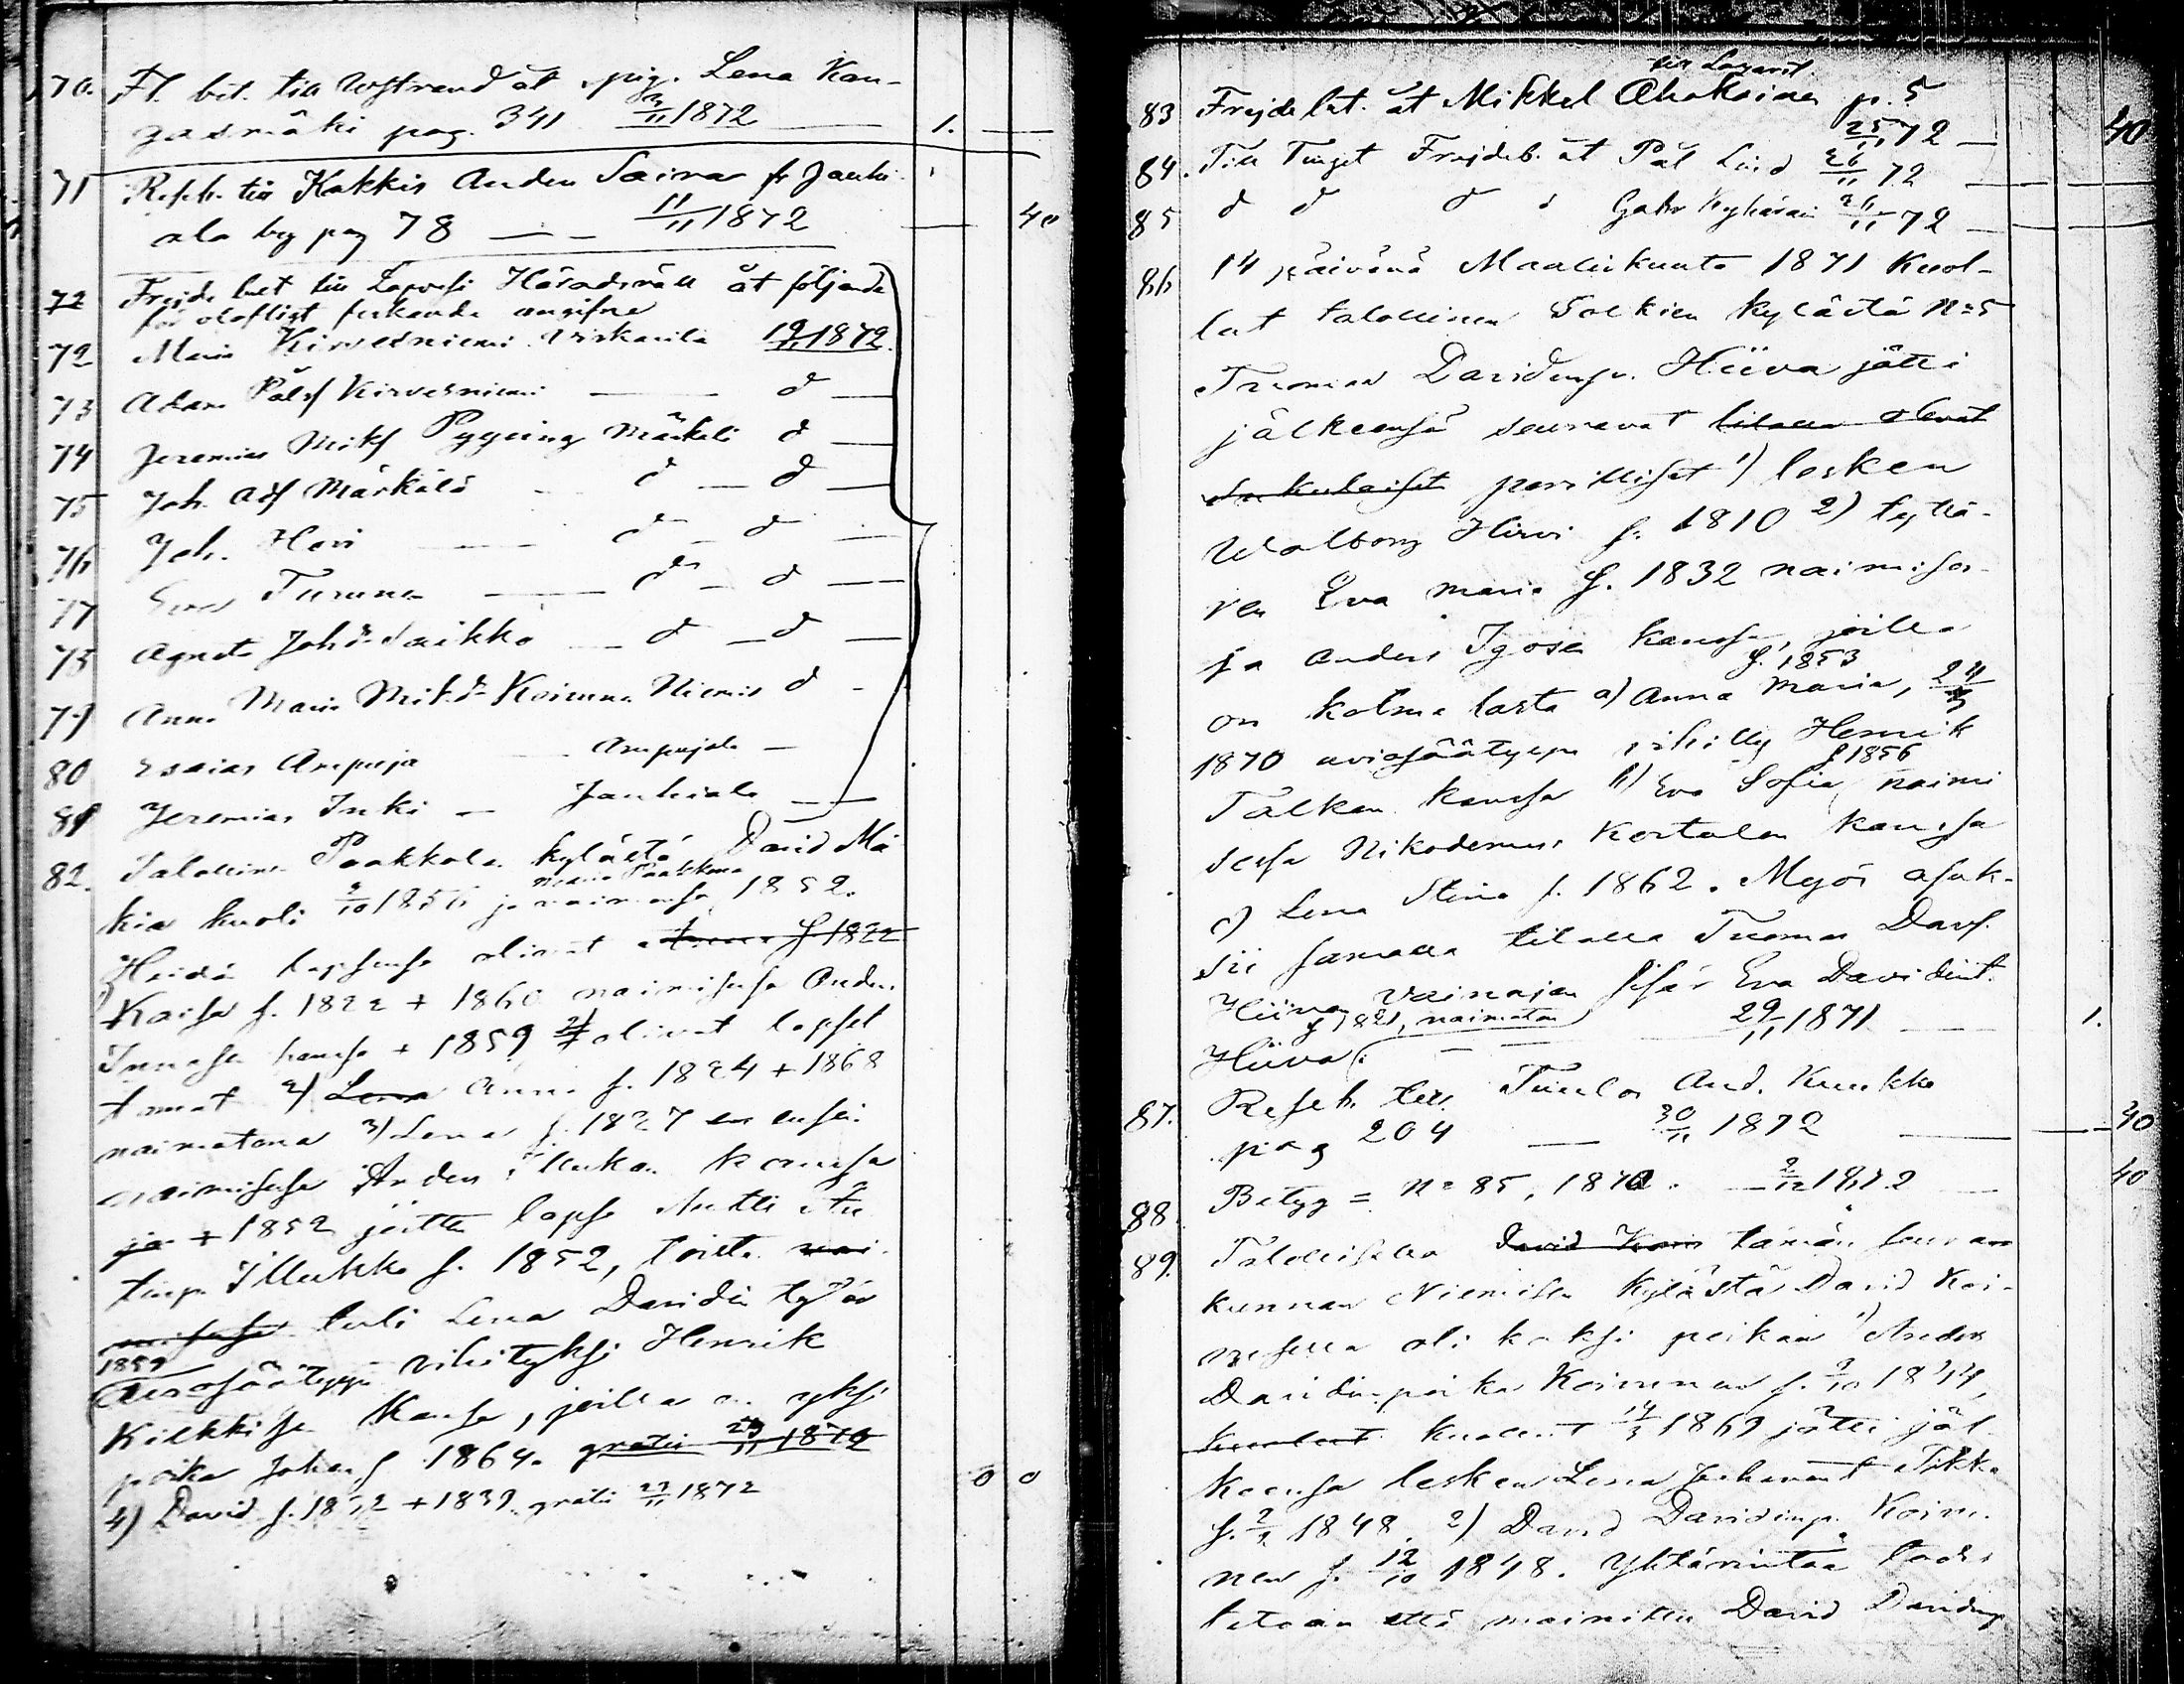 70. Fl. bet. till Wystrand åt pig. Lena Kan-
gasmäki pag. 341 3/11 1872 — 1. —
71 Reseb. till Kakkis Anders Saira fr Jauhi-
ala by pag 78 — — 11/11 1872 — 40
72 Frejde bet till Lapvesi Häradsrätt åt följande
för olofligt angifne
72 Maria Kirvesniemi 19/11 1872.
73 Adam Pålsf Kirvesniemi — d —
74 Jeremias Mikf Pyyeing Märkälä d —
75 Joh. Adf Märkälä — d — d —
76 Joh. Hovi — d — d —
77 Eva Turunen — d — d —
78 Agneta Johsd. Saikko — d — d —
79 Anna Maria Mik.d. Koirunen Niemis d -
80 Esaias Ampuja — Ampujala —
81 Jeremias Inki — Jauhiala — —
82. Talollinen Paakkola kylästä David Mä
kiä kuoli 2/10 1856 ja Maria Paakkona vaimonsa 1852.
Heidän lapsensa olivat f 1822
1) Kaisa f. 1822 + 1860 naimisesa Anders
Innasen kansa + 1859 olivat lapset
tomat 2) Lena Anna f. 1824 + 1868
naimatona 3) Lena f. 1827 en ensin
naimisesa Anders Illukan kanssa
ja + 1852 jätti lapse Antti An
tinp. Illukka f. 1852, toista nai-
misesa tuli Lena Davidin tytär
1859
aviosäätyyn vihityksi Henrik
Kilkkisen kansa, joilla on yksi
poika Johan f 1864. gratis 29/11 1872
4) David f. 1832 + 1839. gratis 29/11 1872 0 0
till Lazaret.
83 Frejdebet. åt Mikkel Ahokainen p. 5
25/11 72 — 40
84. Till Tinget Frejdeb. åt Pål Lind 26/11 72 —
85 d d d d Gabr Kyhäräin 26/11 72 —
86 14 päivänä Maaliskuuta 1871 Kuol-
lut talollinen Solkien kylästä N=5
Tuomas Davidinp. Hiiva jätti
jälkeensä seuravat tilalla olevat
perilliset 1) lesken
Walborg Hirvi f. 1810 2) tyttä-
ren Eva Maria f. 1832 naimisa-
sa Anders Igosen kansa, joilla
on kolme lasta a) Anna Maria, f. 1853 24/3
1870 aviosäätyyn vihitty Henrik
Talkan kanssa b) Eva Sofia, f 1856 naimi
sessa Nikodemus Kortelan kanssa
c) Lena Stina f. 1862. Myös asuk-
sii samalla tilalla Tuomas Davf.
Hiivan vainajan sisär Eva Davidint.
Hiiva f 1821, naimaton — — 29/11 1871 — 1.
87. Reseb. till Tiuula And. Kuukka
pag 204 — 30/11 1872 — — 40
88. Betyg = N= 85, 1872. — 2/12 1872 — 40
89. Talollisella David Koir tämän seura
kunnan Niemisen kylästä David Koi-
rusella oli kaksi poikaa 1) Anders
Davidinpoika Koirunen f. 2/10 1844,
kuollut kuollut 14/3 1869 jätti jäl-
keensä lesken Lena Juhanant Tikka
f. 2/2 1848. 2) David Davidinp. Koiru-
nen f. 12/10 1848. Yhtärintaa todis
tetaan että mainittu David Davidinp